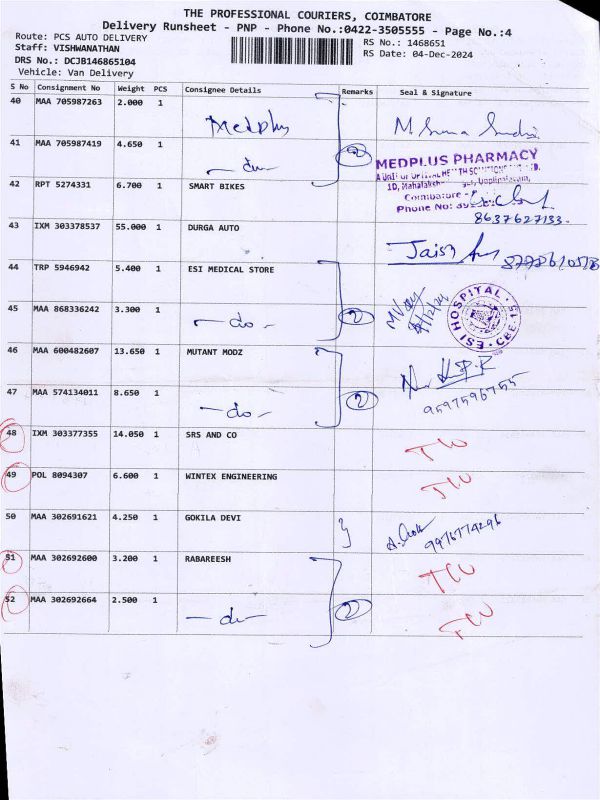 THE PROFESSIONAL COURIERS, COIMBATORE
Delivery Runsheet - PNP - Phone No.:0422-3505555 - Page No.:4
Route: PCS AUTO DELIVERY
RS No.: 1468651
Staff: VISHWANATHAN
RS Date: 04-Dec-2024
DRS No.: DCJB146865104
Vehicle: Van Delivery
S No Consignment No Weight PCS Consignee Details Remarks Seal & Signature
40 MAA 705987263 2.000 1 Medplus
41 MAA 705987419 4.650 1 - do - 2
MEDPLUS PHARMACY
Coimbatore
Phone No:
42 RPT 5274331 6.700 1 SMART BIKES 8637627133.
43 IXM 303378537 55.000 1 DURGA AUTO
44 TRP 5946942 5.400 1 ESI MEDICAL STORE
45 MAA 868336242 3.300 1 - do - 2
ESI HOSPITAL CBE-15
46 MAA 600482607 13.650 1 MUTANT MODZ
47 MAA 574134011 8.650 1 - do - 2 9597596755
48 IXM 303377355 14.050 1 SRS AND CO
49 POL 8094307 6.600 1 WINTEX ENGINEERING
50 MAA 302691621 4.250 1 GOKILA DEVI 9976774296
51 MAA 302692600 3.200 1 RABAREESH
52 MAA 302692664 2.500 1 - do - 2